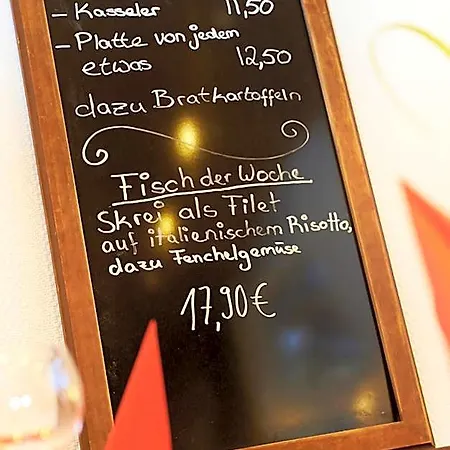 - Kasseler 11,50
- Platte von jedem
etwas 12,50
dazu Bratkartoffeln
Fisch der Woche
Skrei als Filet
auf italienischem Risotto,
dazu Fenchelgemüse
17,90€